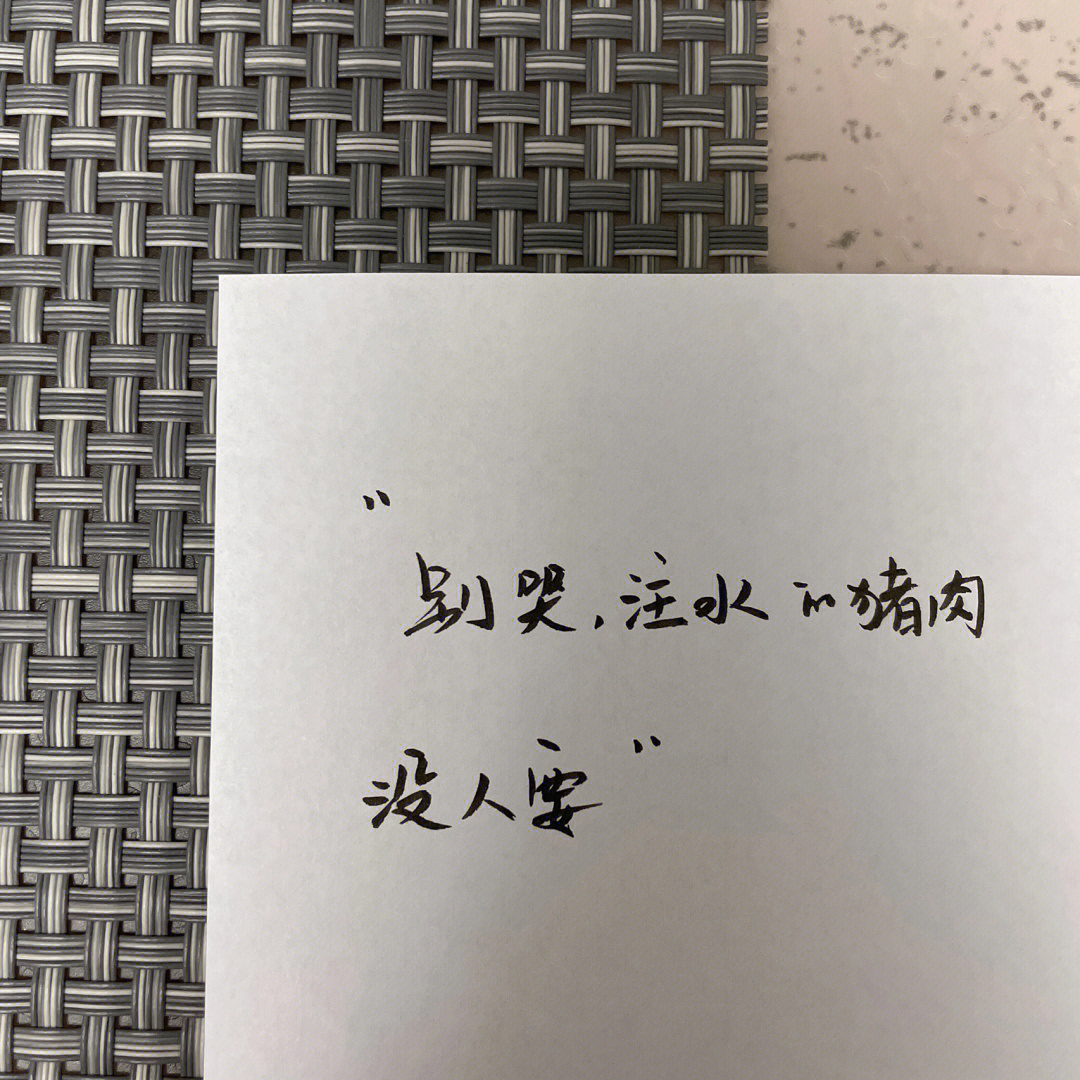 “别哭,注水的猪肉
没人要”